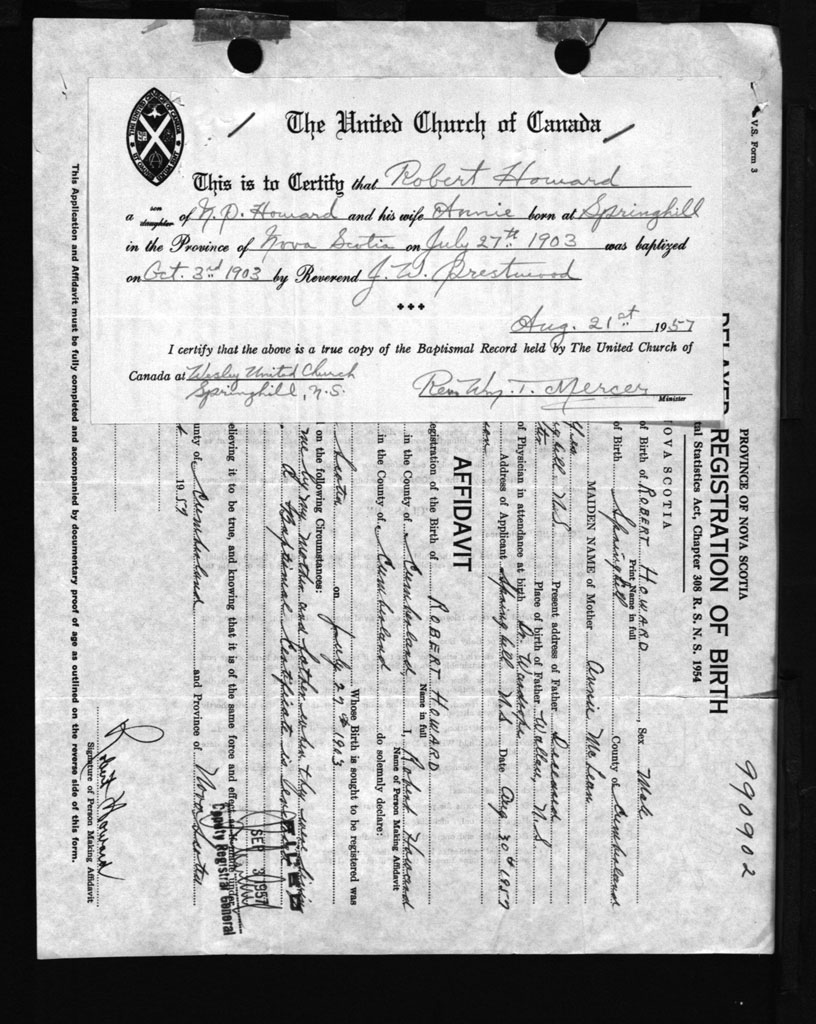 The United Church of Canada
This is to Certify that Robert Howard
a son daughter of N. D. Howard and his wife Annie born at Springhill
in the Province of Nova Scotia on July 27th 1903 was baptized
on Oct. 3rd 1903 by Reverend J. W. Prestwood
Aug. 21st 1957
I certify that the above is a true copy of the Baptismal Record held by The United Church of
Canada at Wesley United Church
Springhill, N.S.
Rev. Wm. T. Mercer
Minister
V.S. Form 3
990902
PROVINCE OF NOVA SCOTIA
DELAYED REGISTRATION OF BIRTH
tal Statistics Act, Chapter 308 R. S. N. S. 1954
NOVA SCOTIA
of Birth of ROBERT HOWARD, Sex Male
Print Name in full
of Birth Springhill County of Cumberland
MAIDEN NAME of Mother Annie McLean
Present address of Father Deceased
hill N.S. Place of birth of Father Wallace, N.S.
of Physician in attendance at birth Dr.
Address of Applicant Springhill N.S. Date Aug 30th 1957
AFFIDAVIT
egistration of the Birth of ROBERT HOWARD
Name in full
in the County of Cumberland, I, Robert Howard
Name of Person Making Affidavit
in the County of Cumberland do solemnly declare:
Whose Birth is sought to be registered was
Scotia on July 27th 1903
on the following Circumstances:
me by my mother and father when they were living
A Baptismal Certificate is
elieving it to be true, and knowing that it is of the same force and effect under
unty of Cumberland and Province of Nova Scotia
1957
FILED
SEP 3 1957
Deputy Registrar General
Robert Howard
Signature of Person Making Affidavit
This Application and Affidavit must be fully completed and accompanied by documentary proof of age as outlined on the reverse side of this form.